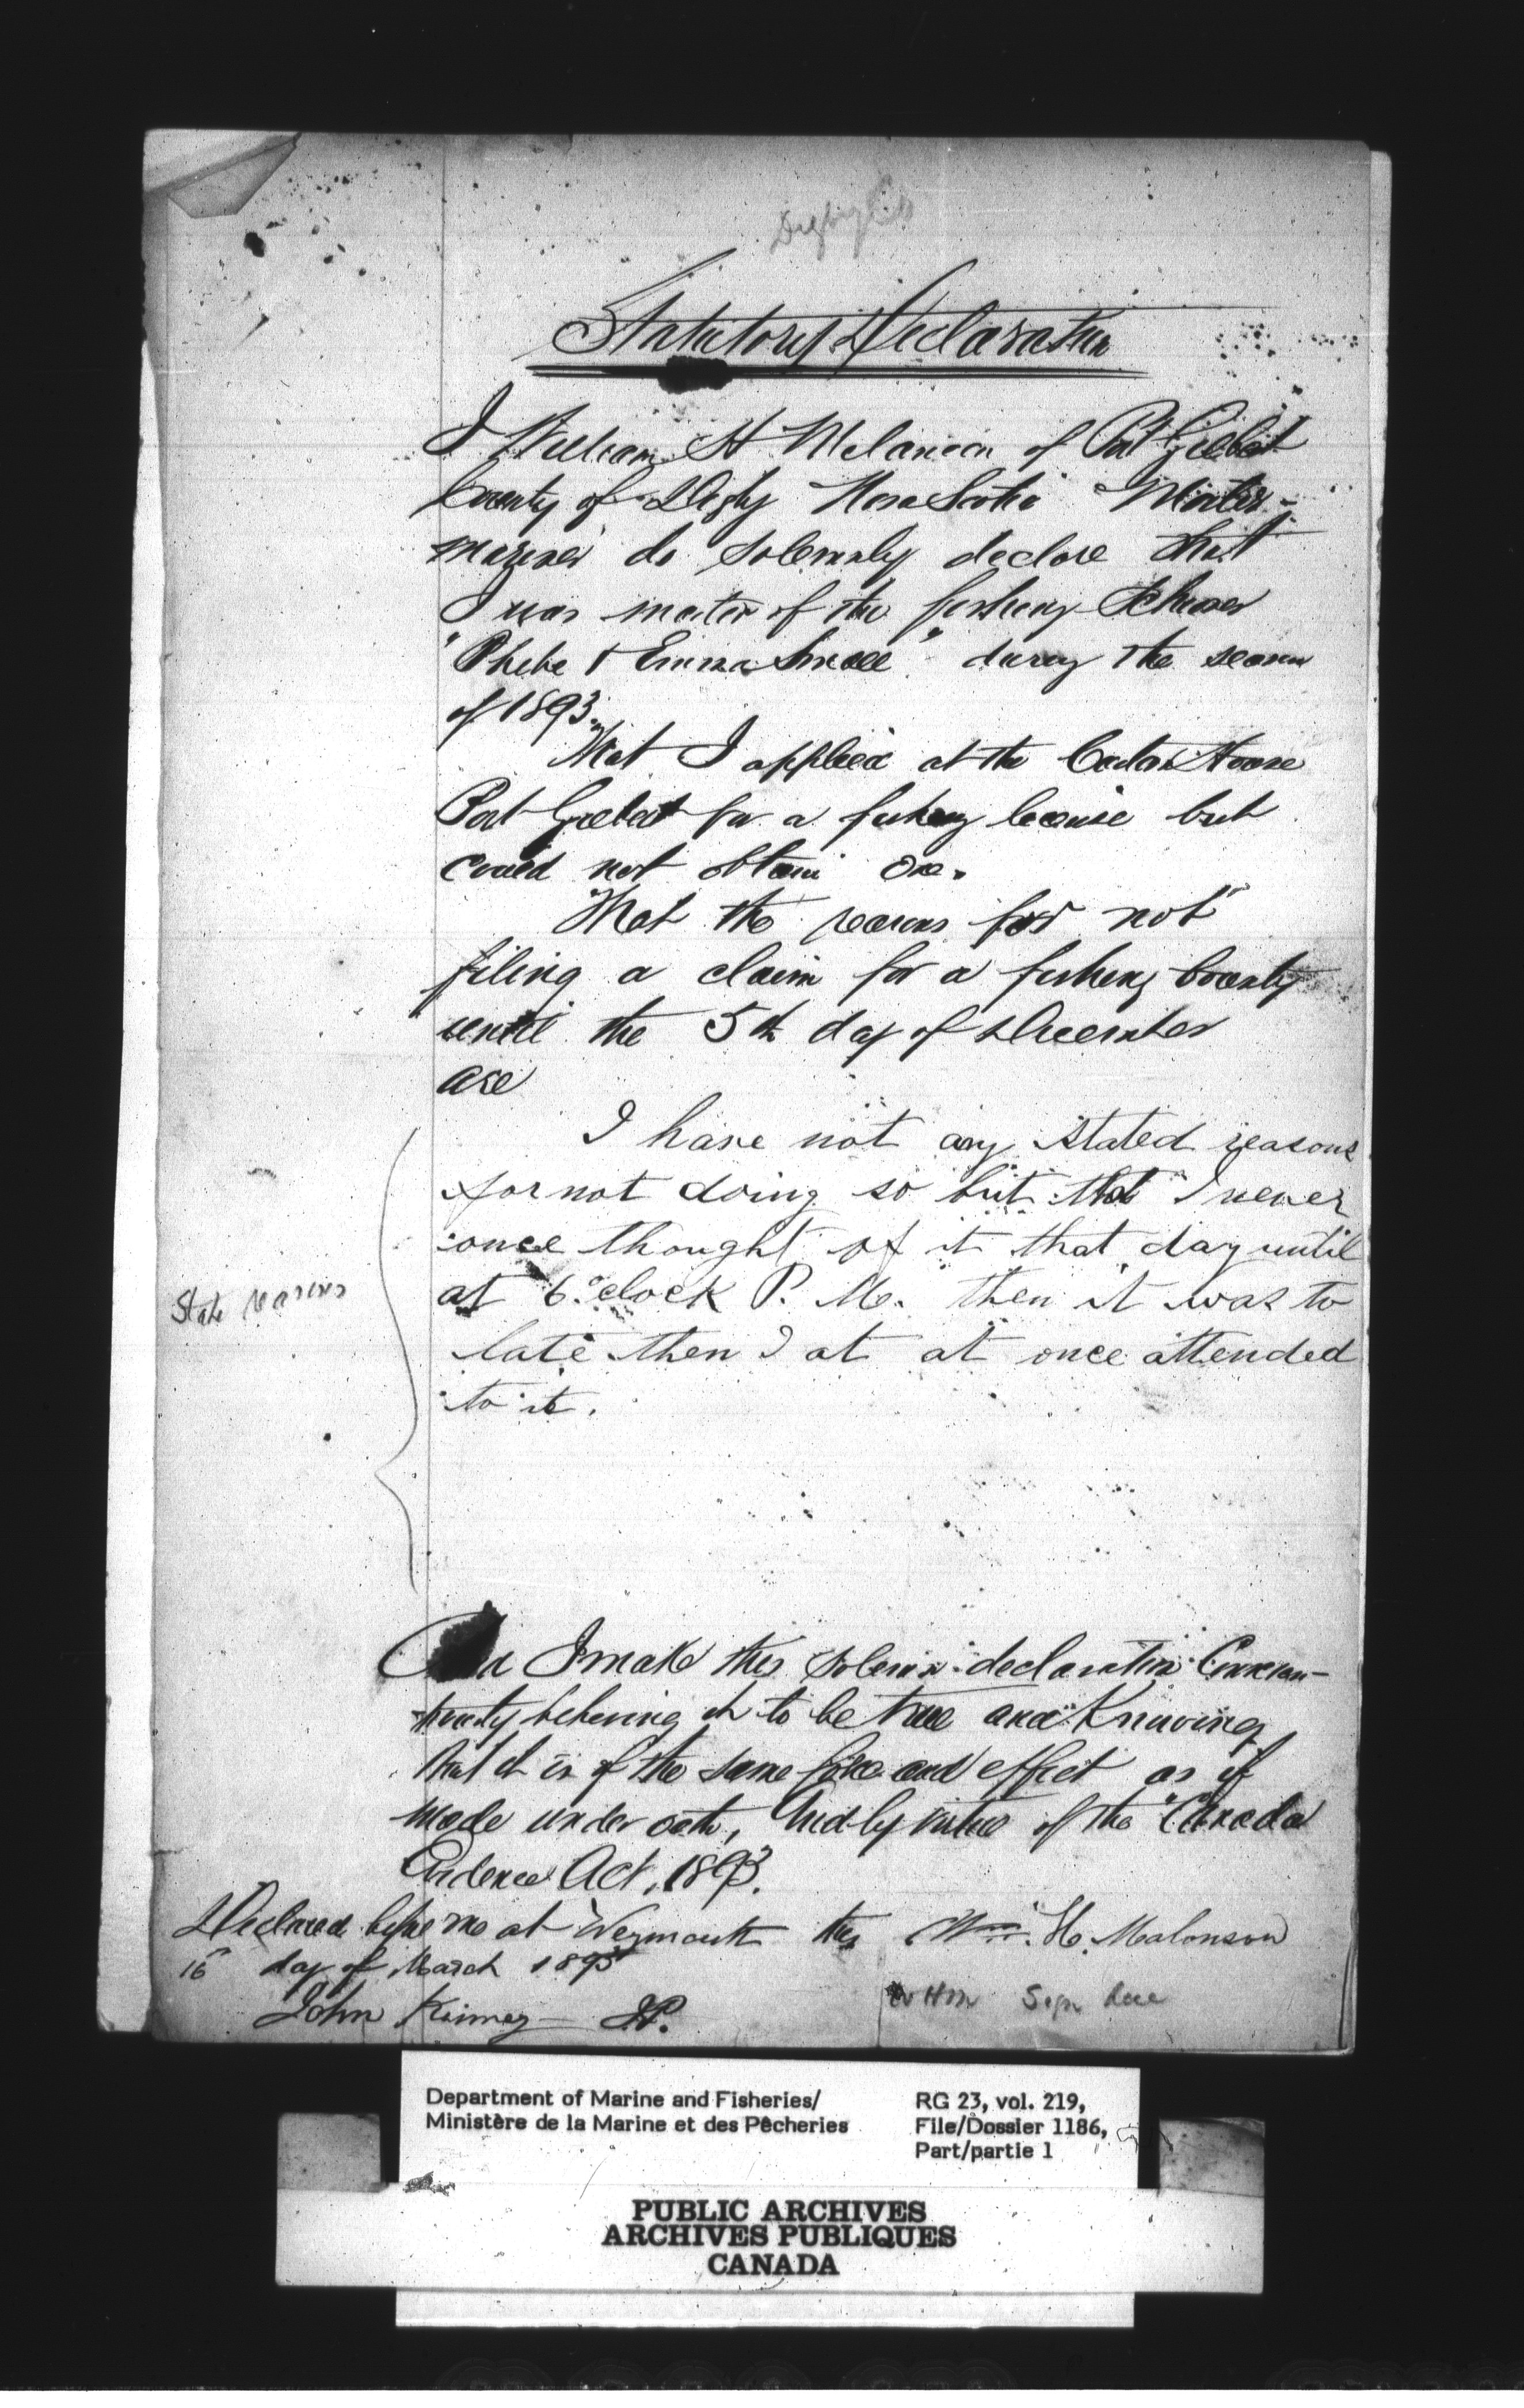 Statutory Declaration
I William H Melanson of Port Gilbert
County of Digby Nova Scotia Master
mariner do solemnly declare that
I was master of the fishing Schooner
"Phebe & Emma Small" during the season
of 1893.
That I applied at the Custom House
Port Gilbert for a fishing license but
could not obtain one.
That the reasons for not
filing a claim for a fishing bounty
until the 5th day of December
are
I have not any stated reasons
for not doing so but that I never
once thought of it that day until
at 6 o'clock P. M. then it was to
late then I at at once attended
to it.
State reasons
And I make this solemn declaration Conscien-
tiously believing it to be true and Knowing
that it is of the same force and effect as if
made under oath, and by virtue of the "Canada
Evidence Act, 1893.
Declared before me at Weymouth this
16th day of March 1895
John Kinney J.P.
Wm. H. Malonson
WHM Sign here
Department of Marine and Fisheries/
Ministère de la Marine et des Pêcheries
RG 23, vol. 219,
File/Dossier 1186,
Part/partie 1
PUBLIC ARCHIVES
ARCHIVES PUBLIQUES
CANADA